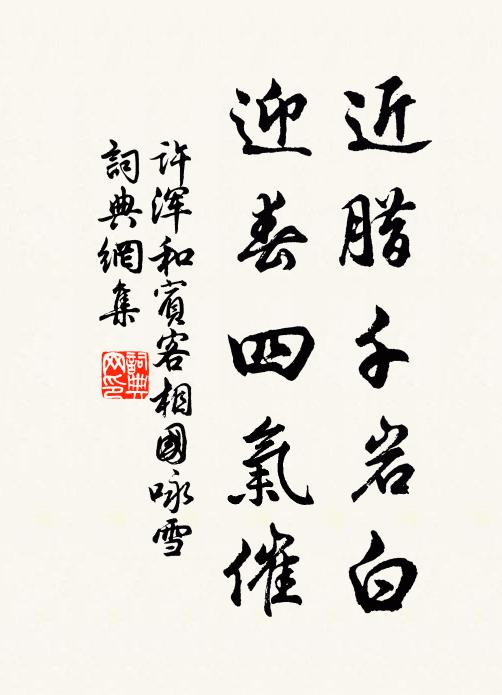 近腊千岩白
迎春四氣催
许浑和賓客相國咏雪
詞典網集
詞典
网印